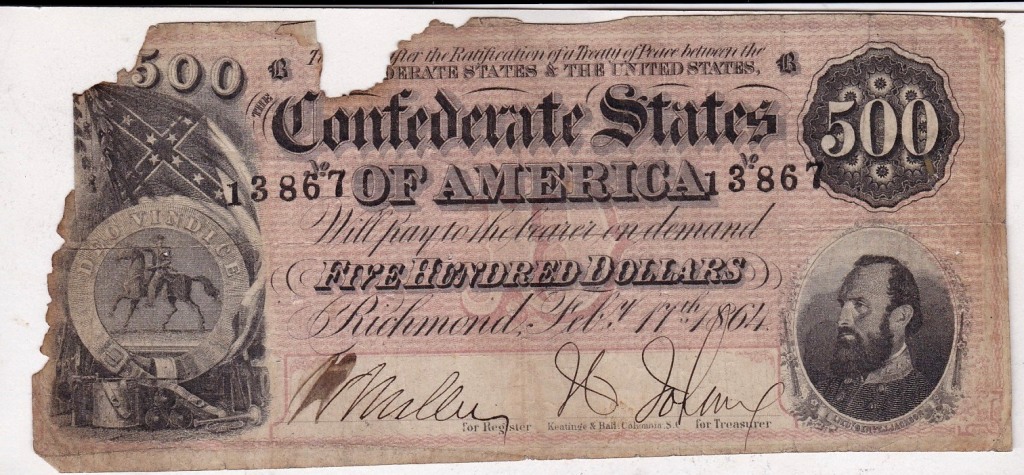 500 B fter the Ratification of a Treaty of Peace between the B
DERATE STATES & THE UNITED STATES,
THE
Confederate States
500
No. No.
13867 OF AMERICA 13867
Will pay to the bearer on demand
DEO VINDICE
FIVE HUNDRED DOLLARS
Richmond, Feby. 17th 1864.
for Register Keatinge & Ball, Columbia, S.C. for Treasurer